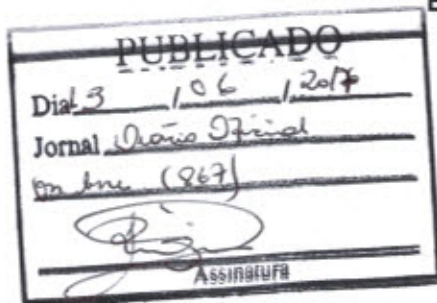 PUBLICADO
Dia 13 / 06 / 2017
Jornal Diário Oficial
on line (867)
Assinatura